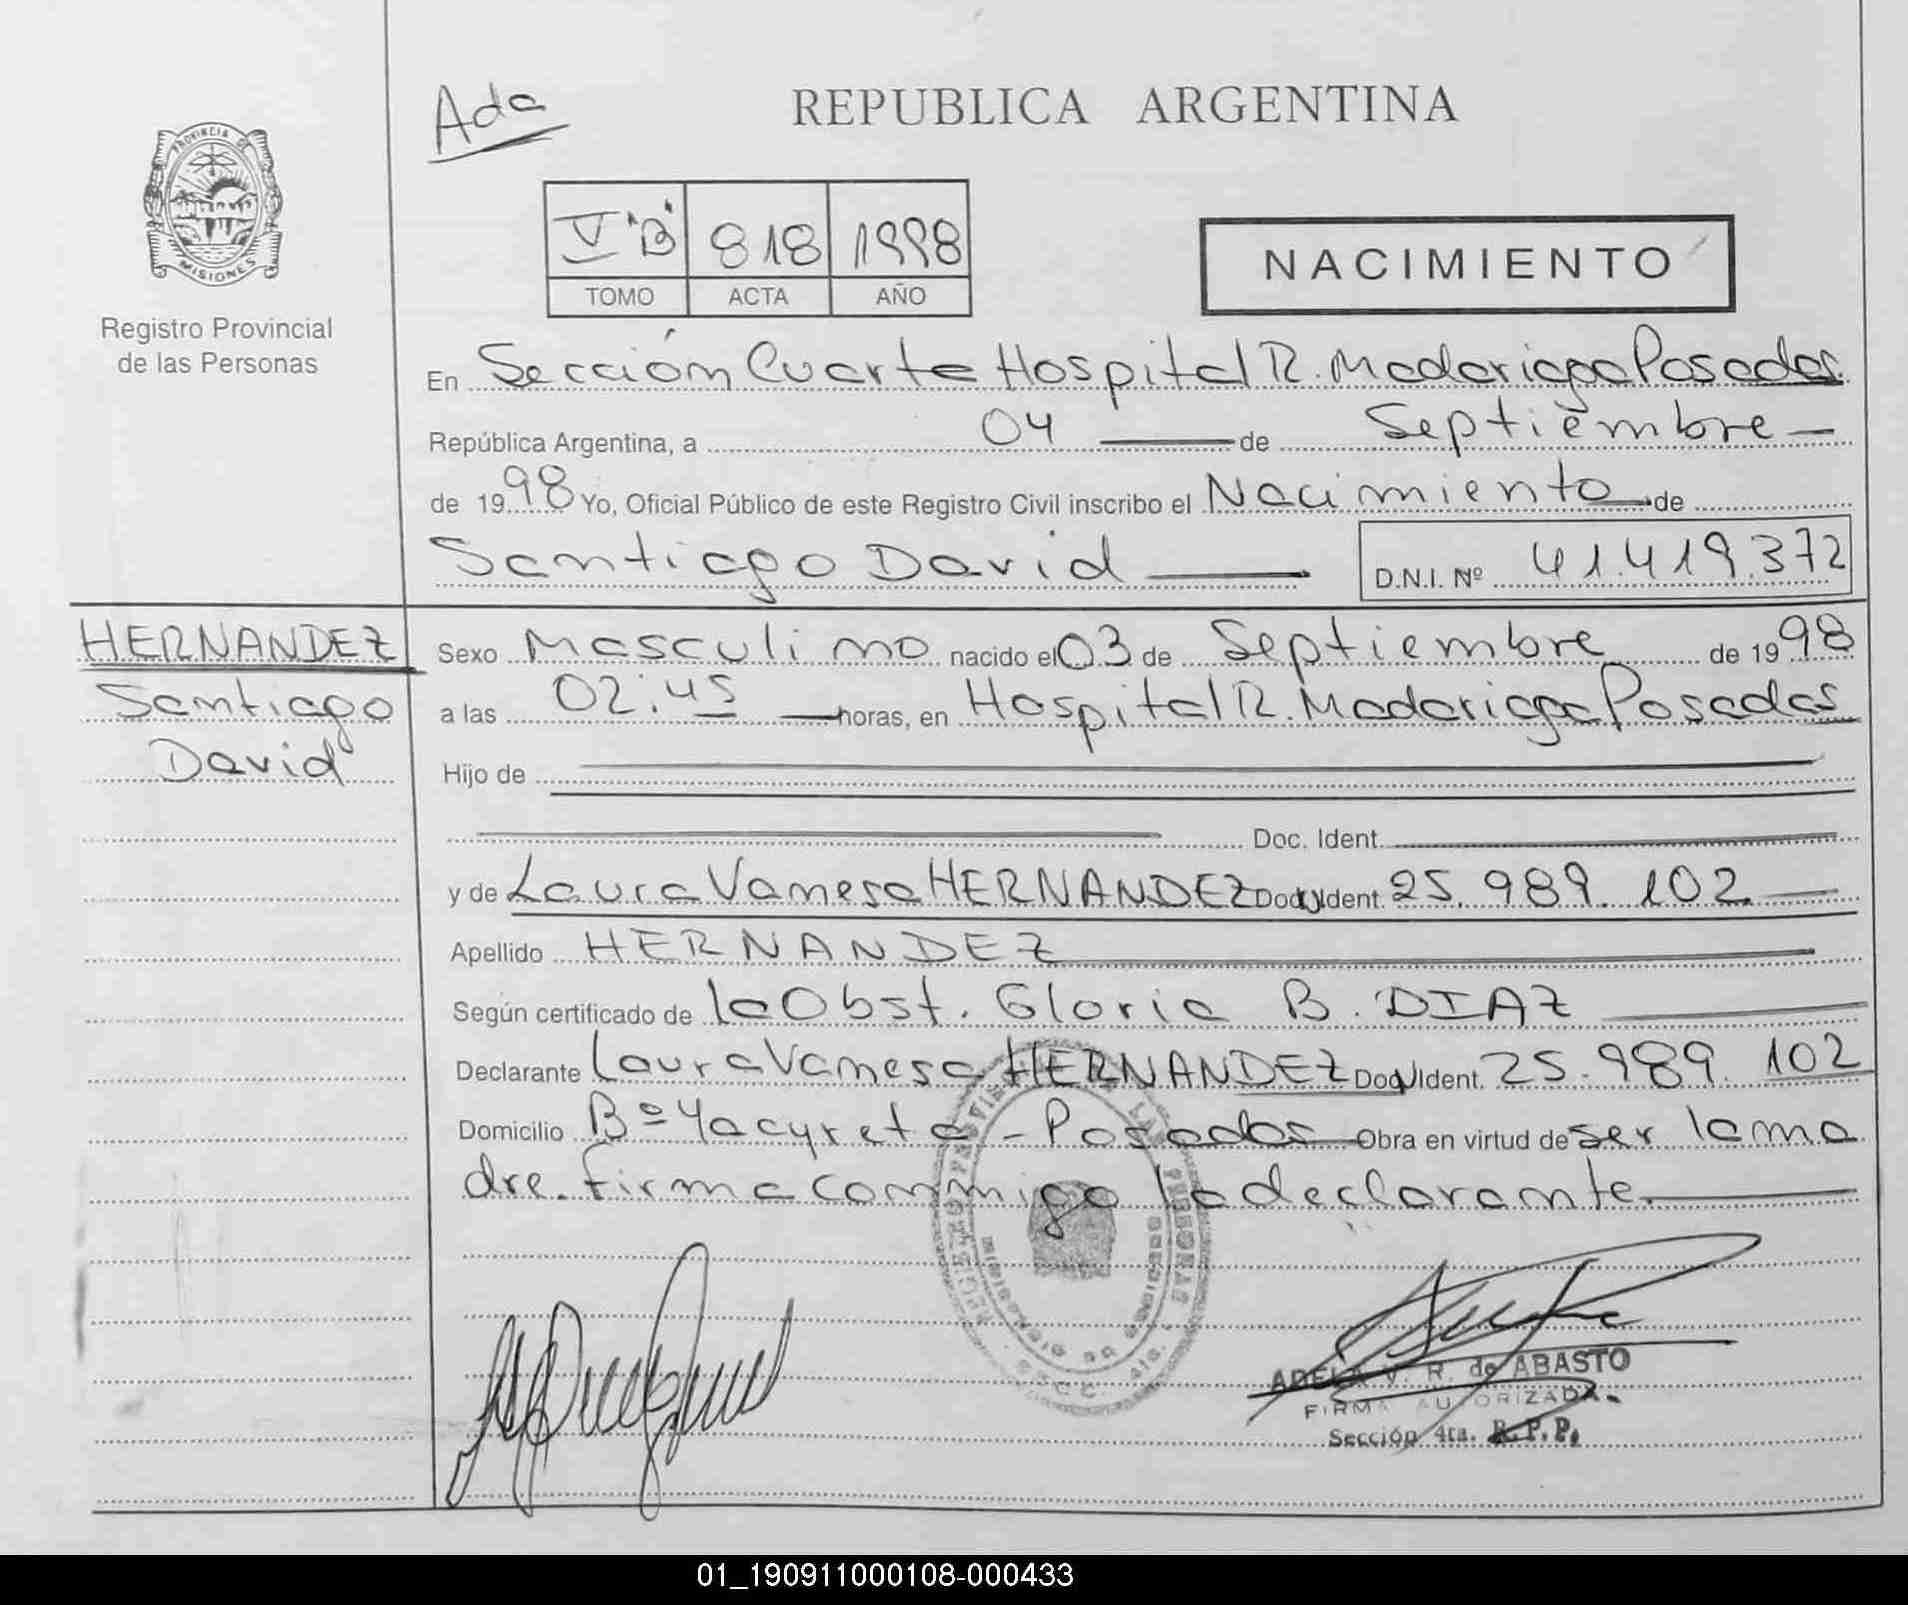 Ada
REPUBLICA ARGENTINA
PROVINCIA DE
MISIONES
Registro Provincial
de las Personas
V "B" 818 1998
TOMO ACTA AÑO
NACIMIENTO
En Sección Cuarta Hospital R. Madariaga Posadas.
República Argentina, a 04 de Septiembre
de 1998 Yo, Oficial Público de este Registro Civil inscribo el Nacimiento de
Santiago David D.N.I. Nº 41.419.372
HERNANDEZ
Santiago
David
Sexo Masculino nacido el 03 de Septiembre de 1998
a las 02:45 horas, en Hospital R. Madariaga Posadas
Hijo de
Doc. Ident.
y de Laura Vanesa HERNANDEZ Doc. Ident. 25.989.102
Apellido HERNANDEZ
Según certificado de la Obst. Gloria B. DIAZ
Declarante Laura Vanesa HERNANDEZ Doc. Ident. 25.989.102
Domicilio Bº Yacyreta - Posadas Obra en virtud de ser la ma
dre. firma conmigo la declarante.
ADELA V. R. de ABASTO
FIRMA AUTORIZADA
Sección 4ta. R.P.P.
01_190911000108-000433